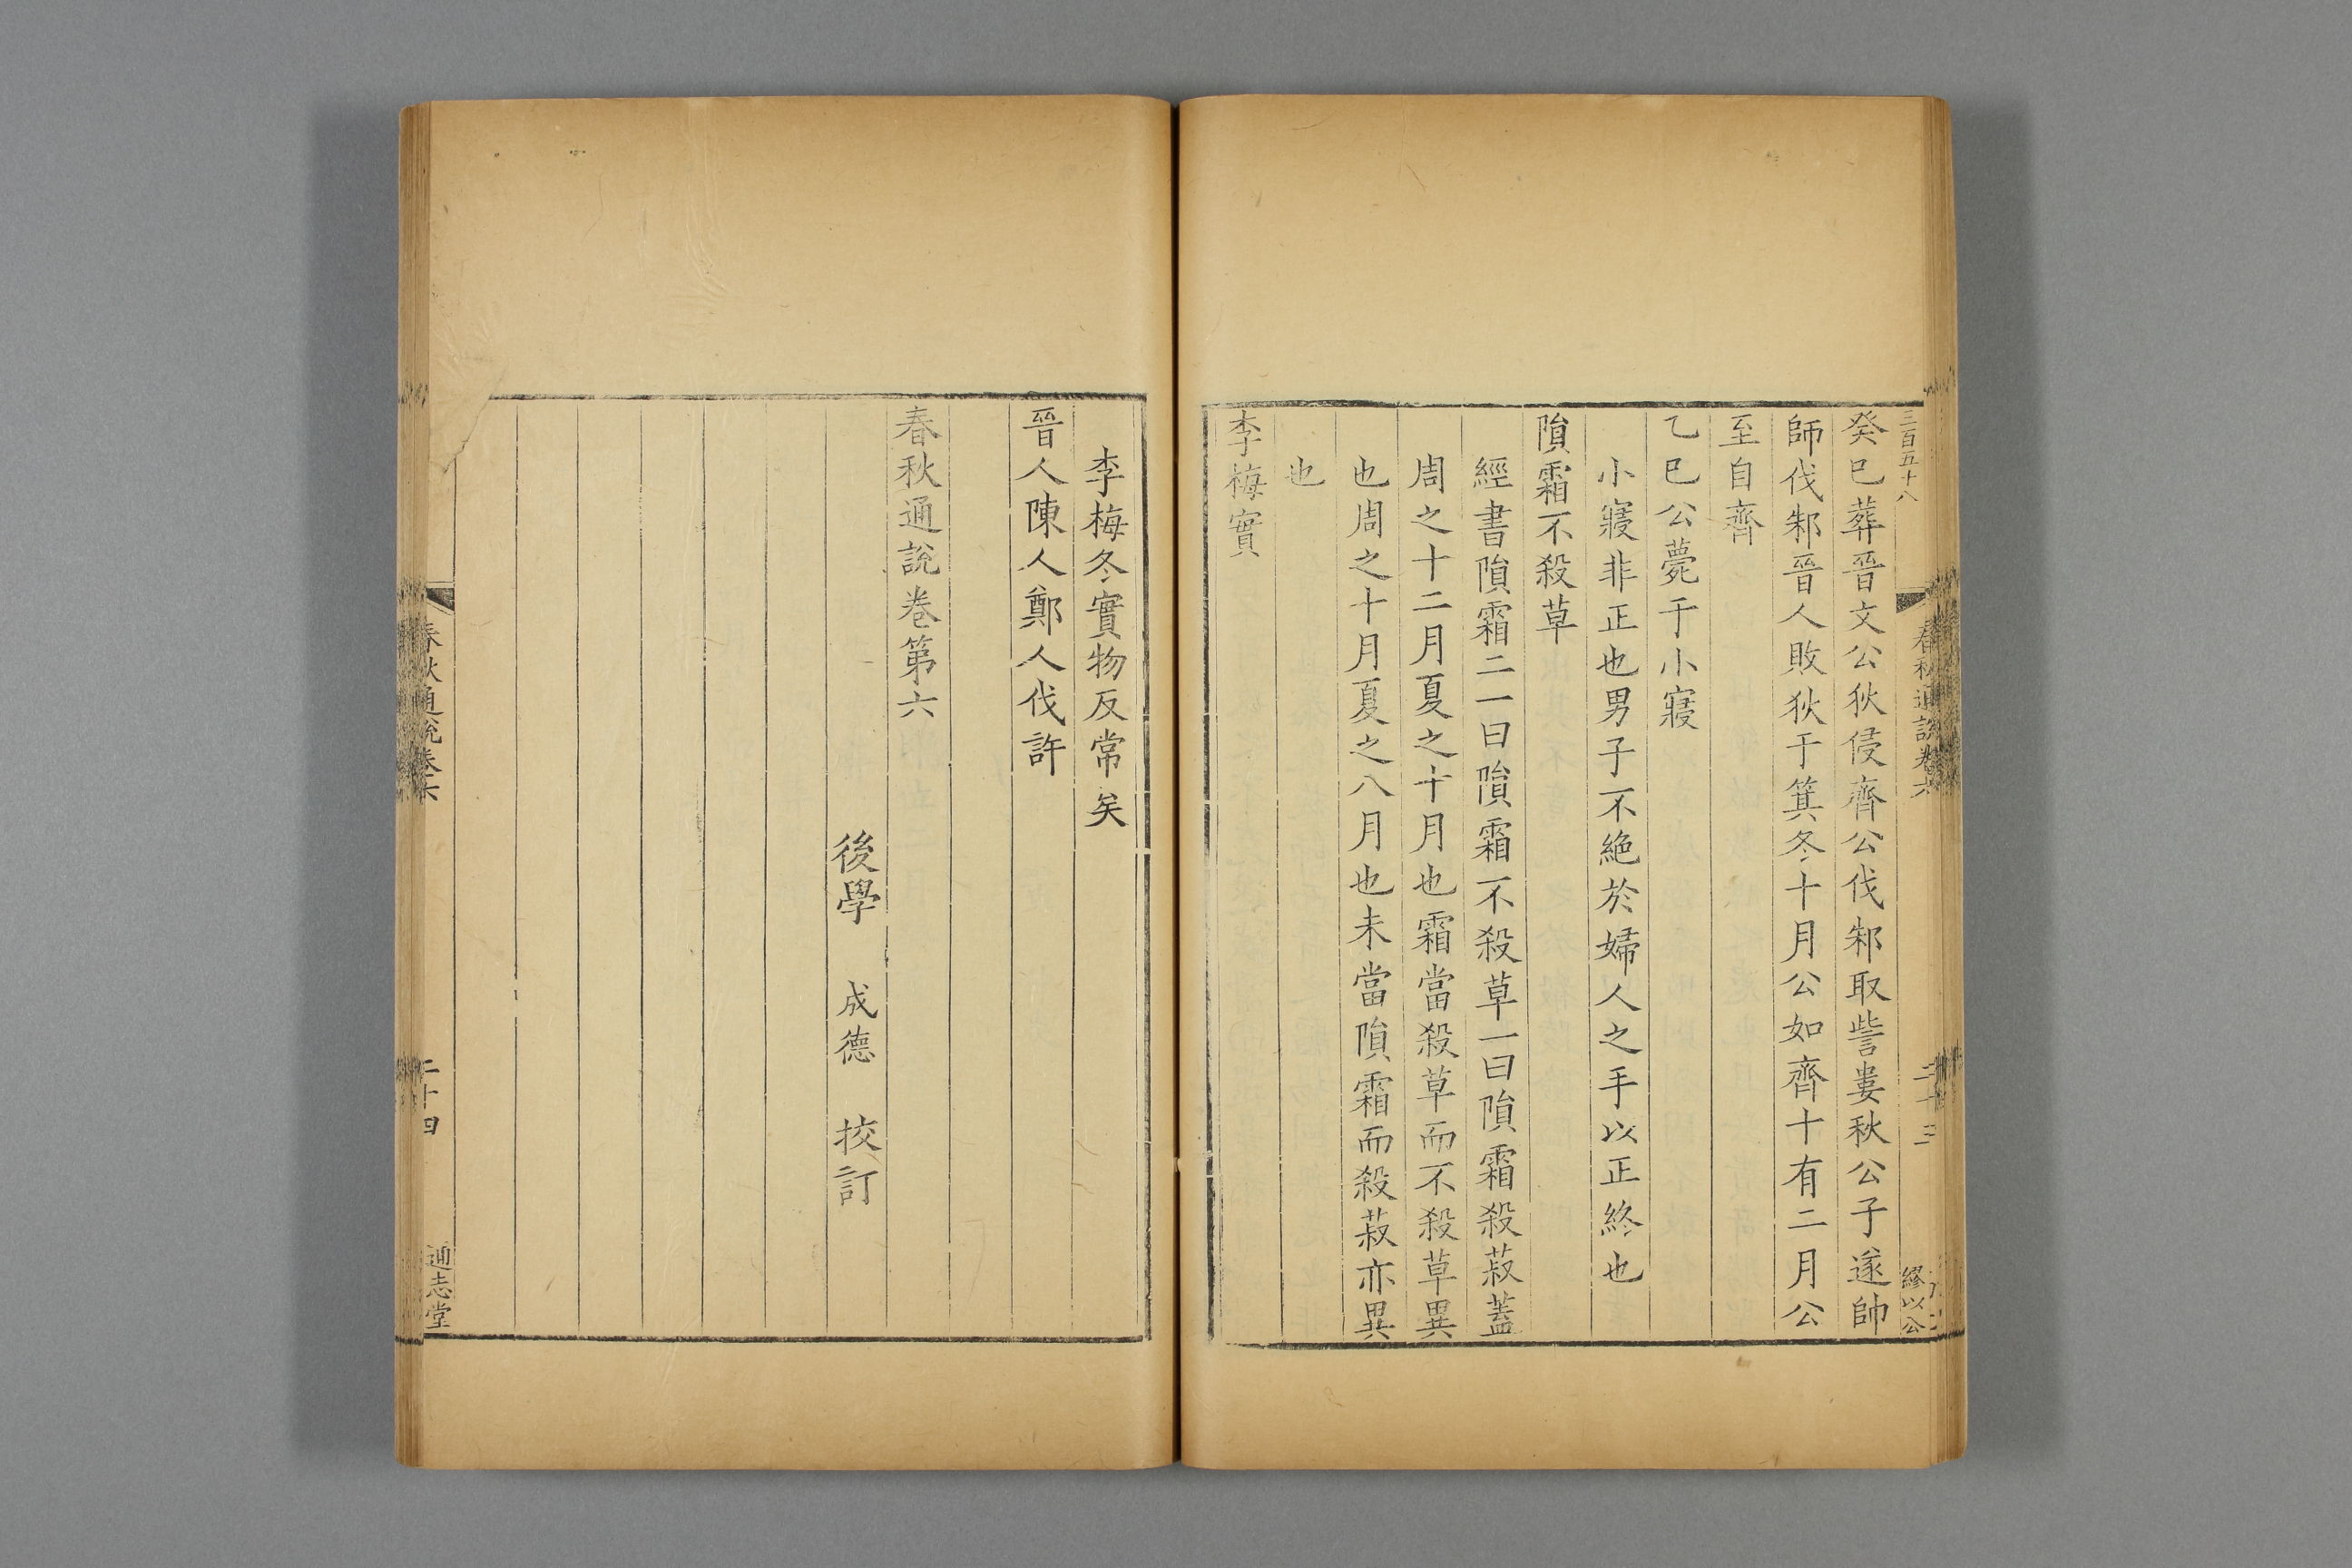 三百五十八
春秋通說卷六
二十三
繆以公
癸巳葬晉文公狄侵齊公伐邾取訾婁秋公子遂帥
師伐邾晉人敗狄于箕冬十月公如齊十有二月公
至自齊
乙巳公薨于小寢
小寢非正也男子不絶於婦人之手以正終也
隕霜不殺草
經書隕霜二一曰隕霜不殺草一曰隕霜殺菽蓋
周之十二月夏之十月也霜當殺草而不殺草異
也周之十月夏之八月也未當隕霜而殺菽亦異
也
李梅實
李梅冬實物反常矣
晉人陳人鄭人伐許
春秋通說卷第六
後學 成德 挍訂
春秋通說卷六
二十四
通志堂